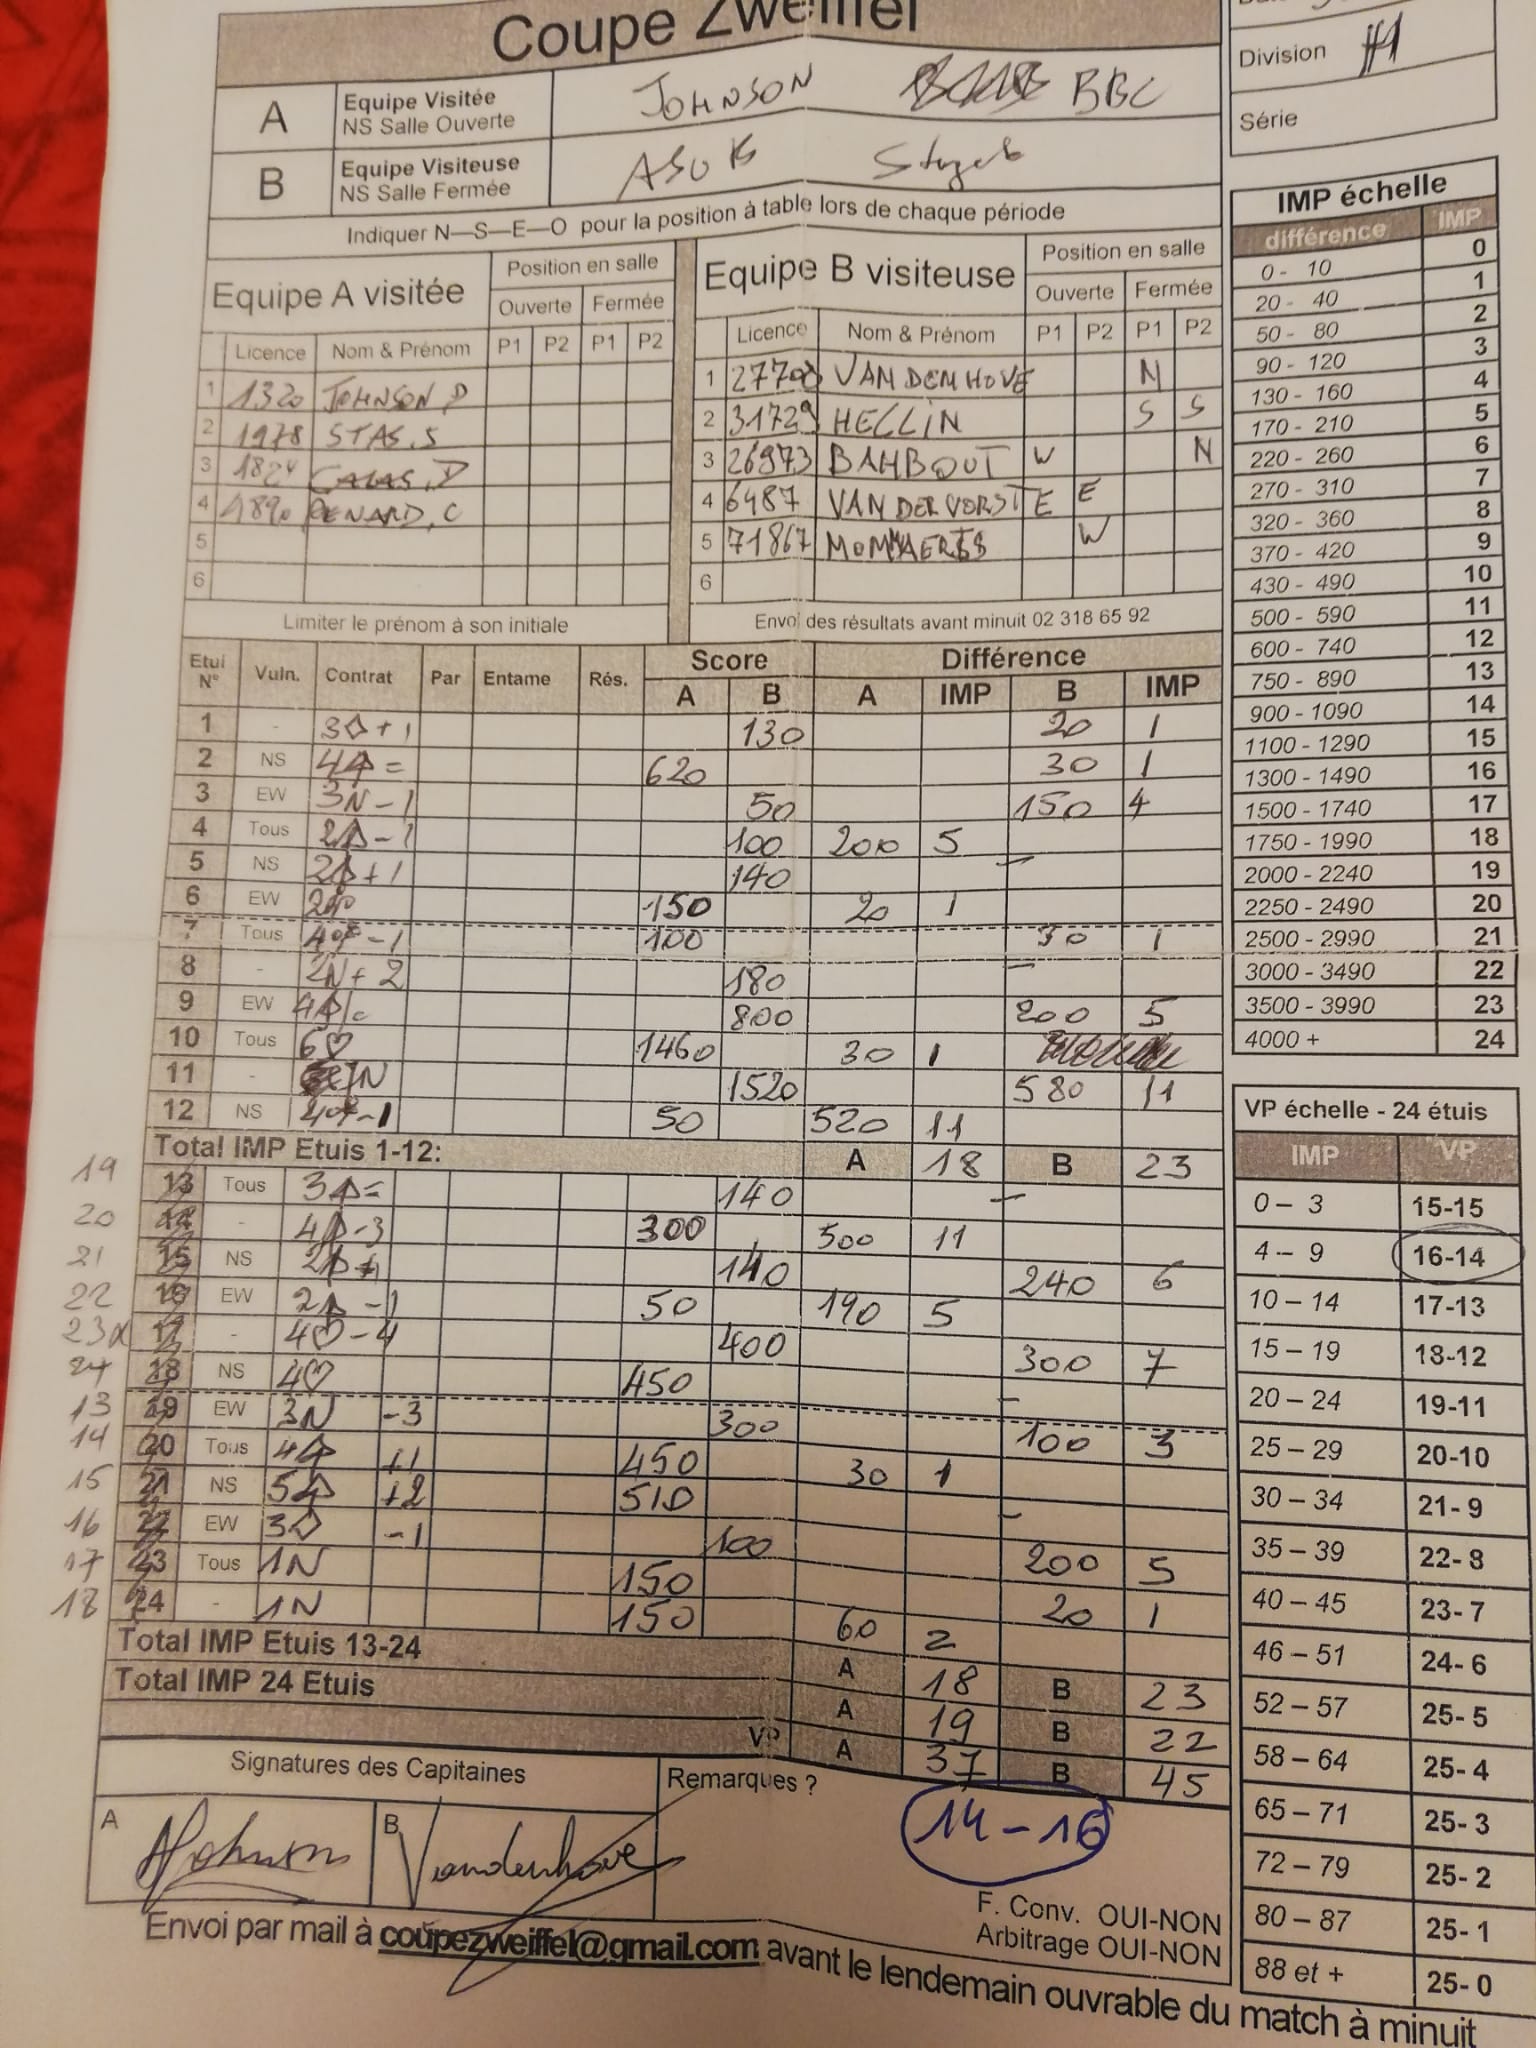 Coupe Zweiffel
Division #1
Série
A Equipe Visitée NS Salle Ouverte JOHNSON BBC
B Equipe Visiteuse NS Salle Fermée
Indiquer N—S—E—O pour la position à table lors de chaque période
Equipe A visitée Position en salle
Ouverte Fermée
Licence Nom & Prénom P1 P2 P1 P2
1 1320 JOHNSON, D
2 1978 STAS, S
3 1824
4 RENARD, C
5
6
Limiter le prénom à son initiale
Equipe B visiteuse Position en salle
Ouverte Fermée
Licence Nom & Prénom P1 P2 P1 P2
1 VANDENHOVE N
2 31729 HELLIN S S
3 26973 BAHBOUT W N
4 6487 VANDERVORST E E
5 71867 MOMMAERTS W
6
Envoi des résultats avant minuit 02 318 65 92
Etui N° Vuln. Contrat Par Entame Rés. Score Différence
A B A IMP B IMP
1 - 3◊+1 130 20 1
2 NS 4♠= 620 30 1
3 EW 3N-1 50 150 4
4 Tous 2♠-1 100 200 5
5 NS 2♠+1 140 -
6 EW 2♣ 150 20 1
7 Tous 4♣-1 100 30 1
8 - 2N+2 180 -
9 EW 4♠ 800 200 5
10 Tous 6♡ 1460 30 1
11 - N 1520 580 11
12 NS 4♣-1 50 520 11
Total IMP Etuis 1-12: A 18 B 23
19 13 Tous 3♠= 140 -
20 14 - 4♠-3 300 500 11
21 15 NS 2♠ 140 240 6
22 16 EW 2♠-1 50 190 5
23 17 - 4♡-4 400 300 7
24 18 NS 4♡ 450 -
13 19 EW 3N -3 300 100 3
14 20 Tous 4♠ +1 450 30 1
15 21 NS 5♠ +2 510 -
16 22 EW 3◊ -1 100 200 5
17 23 Tous 1N 150 20 1
18 24 - 1N 150 60 2
Total IMP Etuis 13-24 A 18 B 23
Total IMP 24 Etuis A 19 B 22
VP A 37 B 45
Signatures des Capitaines
A Johnson B Vandenhove
Remarques ?
14-16
F. Conv. OUI-NON
Arbitrage OUI-NON
Envoi par mail à coupezweiffel@gmail.com avant le lendemain ouvrable du match à minuit
IMP échelle
différence IMP
0 - 10 0
20 - 40 1
50 - 80 2
90 - 120 3
130 - 160 4
170 - 210 5
220 - 260 6
270 - 310 7
320 - 360 8
370 - 420 9
430 - 490 10
500 - 590 11
600 - 740 12
750 - 890 13
900 - 1090 14
1100 - 1290 15
1300 - 1490 16
1500 - 1740 17
1750 - 1990 18
2000 - 2240 19
2250 - 2490 20
2500 - 2990 21
3000 - 3490 22
3500 - 3990 23
4000 + 24
VP échelle - 24 étuis
IMP VP
0 – 3 15-15
4 – 9 16-14
10 – 14 17-13
15 – 19 18-12
20 – 24 19-11
25 – 29 20-10
30 – 34 21- 9
35 – 39 22- 8
40 – 45 23- 7
46 – 51 24- 6
52 – 57 25- 5
58 – 64 25- 4
65 – 71 25- 3
72 – 79 25- 2
80 – 87 25- 1
88 et + 25- 0